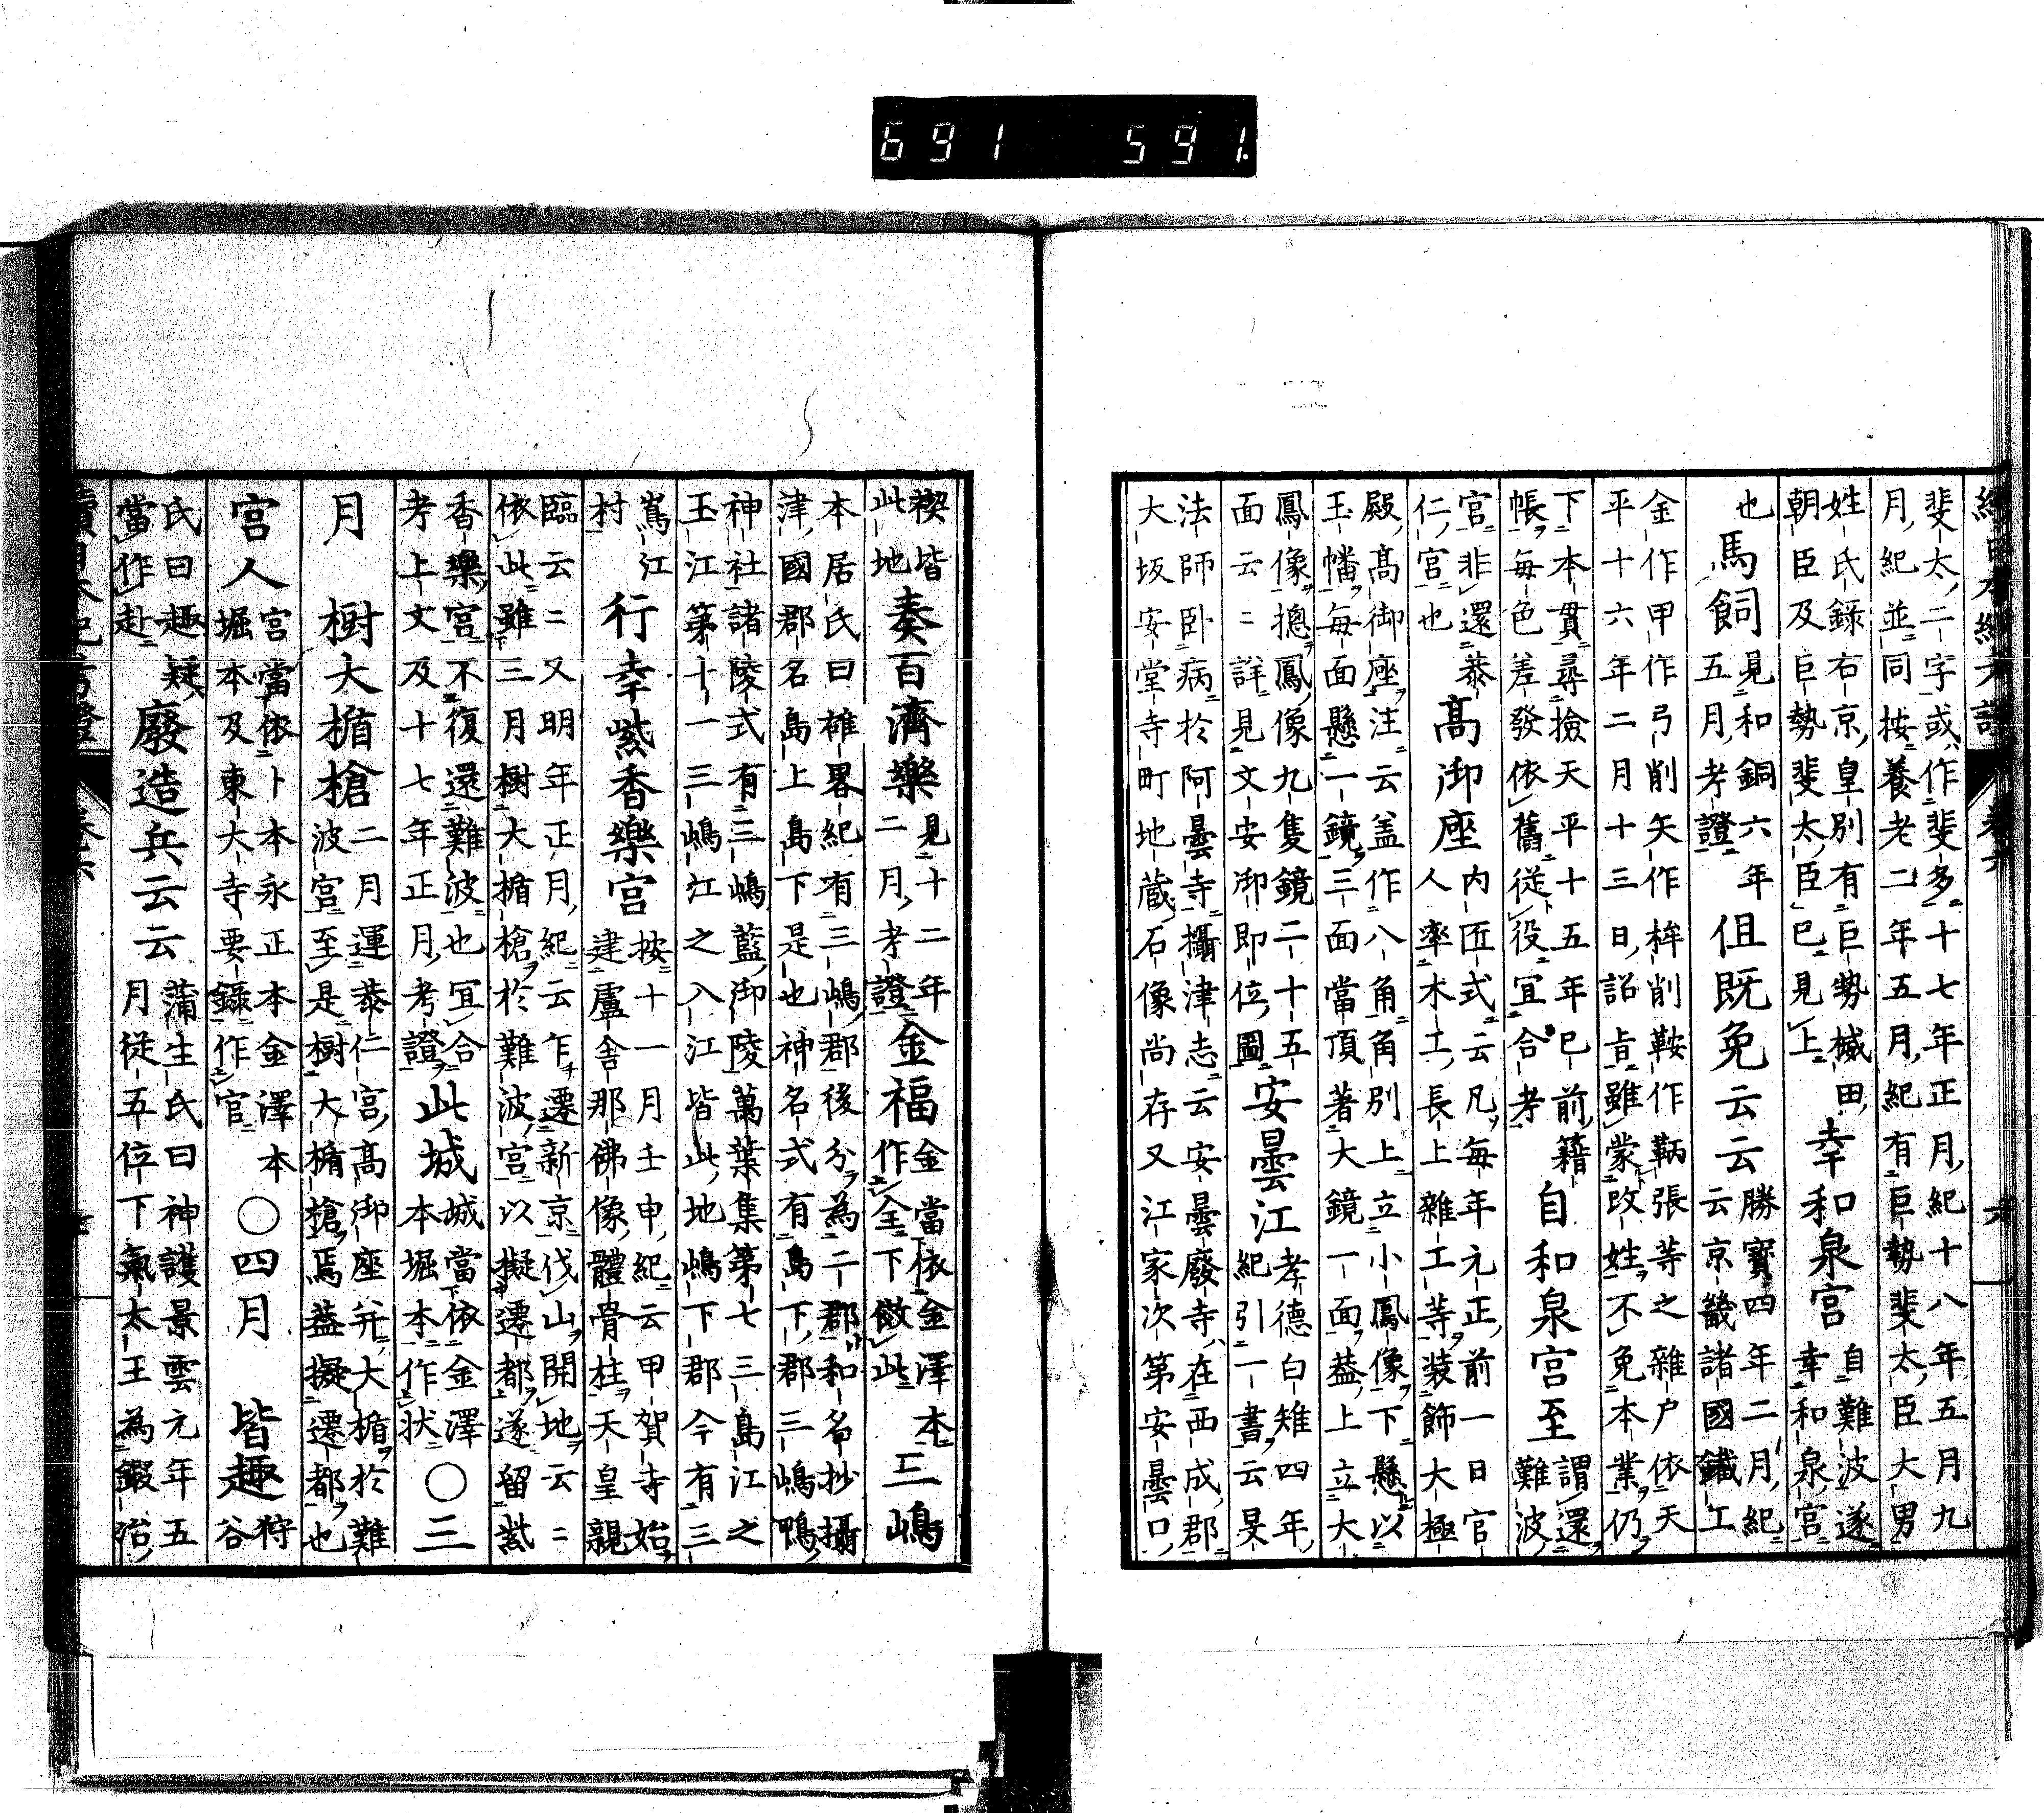 691 591.
斐太二字或作斐多十七年正月紀十八年五月九
月紀並同按養老二年五月紀有巨勢斐太臣大男
姓氏錄右京皇別有巨勢槭田
朝臣及巨勢斐太臣已見上
幸和泉宮
自難波遂
幸和泉宮
也
馬飼
見和銅六年
五月考證
伹既免云云
勝寶四年二月紀
云京畿諸國鐵工
金作甲作弓削矢作桙削鞍作鞆張等之雜户依天
平十六年二月十三日詔旨雖蒙改姓不免本業仍
下本貫尋撿天平十五年已前籍
帳每色差發依舊從役宜合考
自和泉宮至
謂還
難波
宮非還恭
仁宮也
高御座
內匠式云凡每年元正前一日官
人率木工長上雜工等装飾大極
殿高御座注云盖作八角角別上立小鳳像下懸以
玉幡每面懸一鏡三面當頂著大鏡一面葢上立大
鳳像摠鳳像九隻鏡二十五
面云〻詳見文安御即位圖
安曇江
孝德白雉四年
紀引一書云旻
法師卧病於阿曇寺攝津志云安曇廢寺在西成郡
大坂安堂寺町地蔵石像尚存又江家次第安曇口
禊皆
此地
奏百濟樂
見十二年
二月考證
金福
金當依金澤本
作全下傚此
三嶋
本居氏曰雄畧紀有三嶋郡後分為二郡和名抄攝
津國郡名島上島下是也神名式有島下郡三嶋鴨
神社諸陵式有三嶋藍御陵萬葉集第七三島江之
玉江第十一三嶋江之入江皆此地嶋下郡今有三
嶌江
村
行幸紫香樂宮
按十一月壬申紀云甲賀寺始
建盧舎那佛像體骨柱天皇親
臨云〻又明年正月紀云乍遷新京伐山開地云〻
依此雖三月樹大楯槍於難波宮以擬遷都遂留紫
香樂宮不復還難波也冝合
考上文及十七年正月考證
此城
城當依金澤
本堀本作状
○三
月
樹大楯槍
二月運恭仁宮高御座并大楯於難
波宮至是樹大楯槍焉葢擬遷都也
宮人
宮當依卜本永正本金澤本
堀本及東大寺要錄作官
○四月
皆趣
狩
谷
氏曰趣疑
當作赴
廢造兵云云
蒲生氏曰神護景雲元年五
月從五位下氣太王為鍜冶